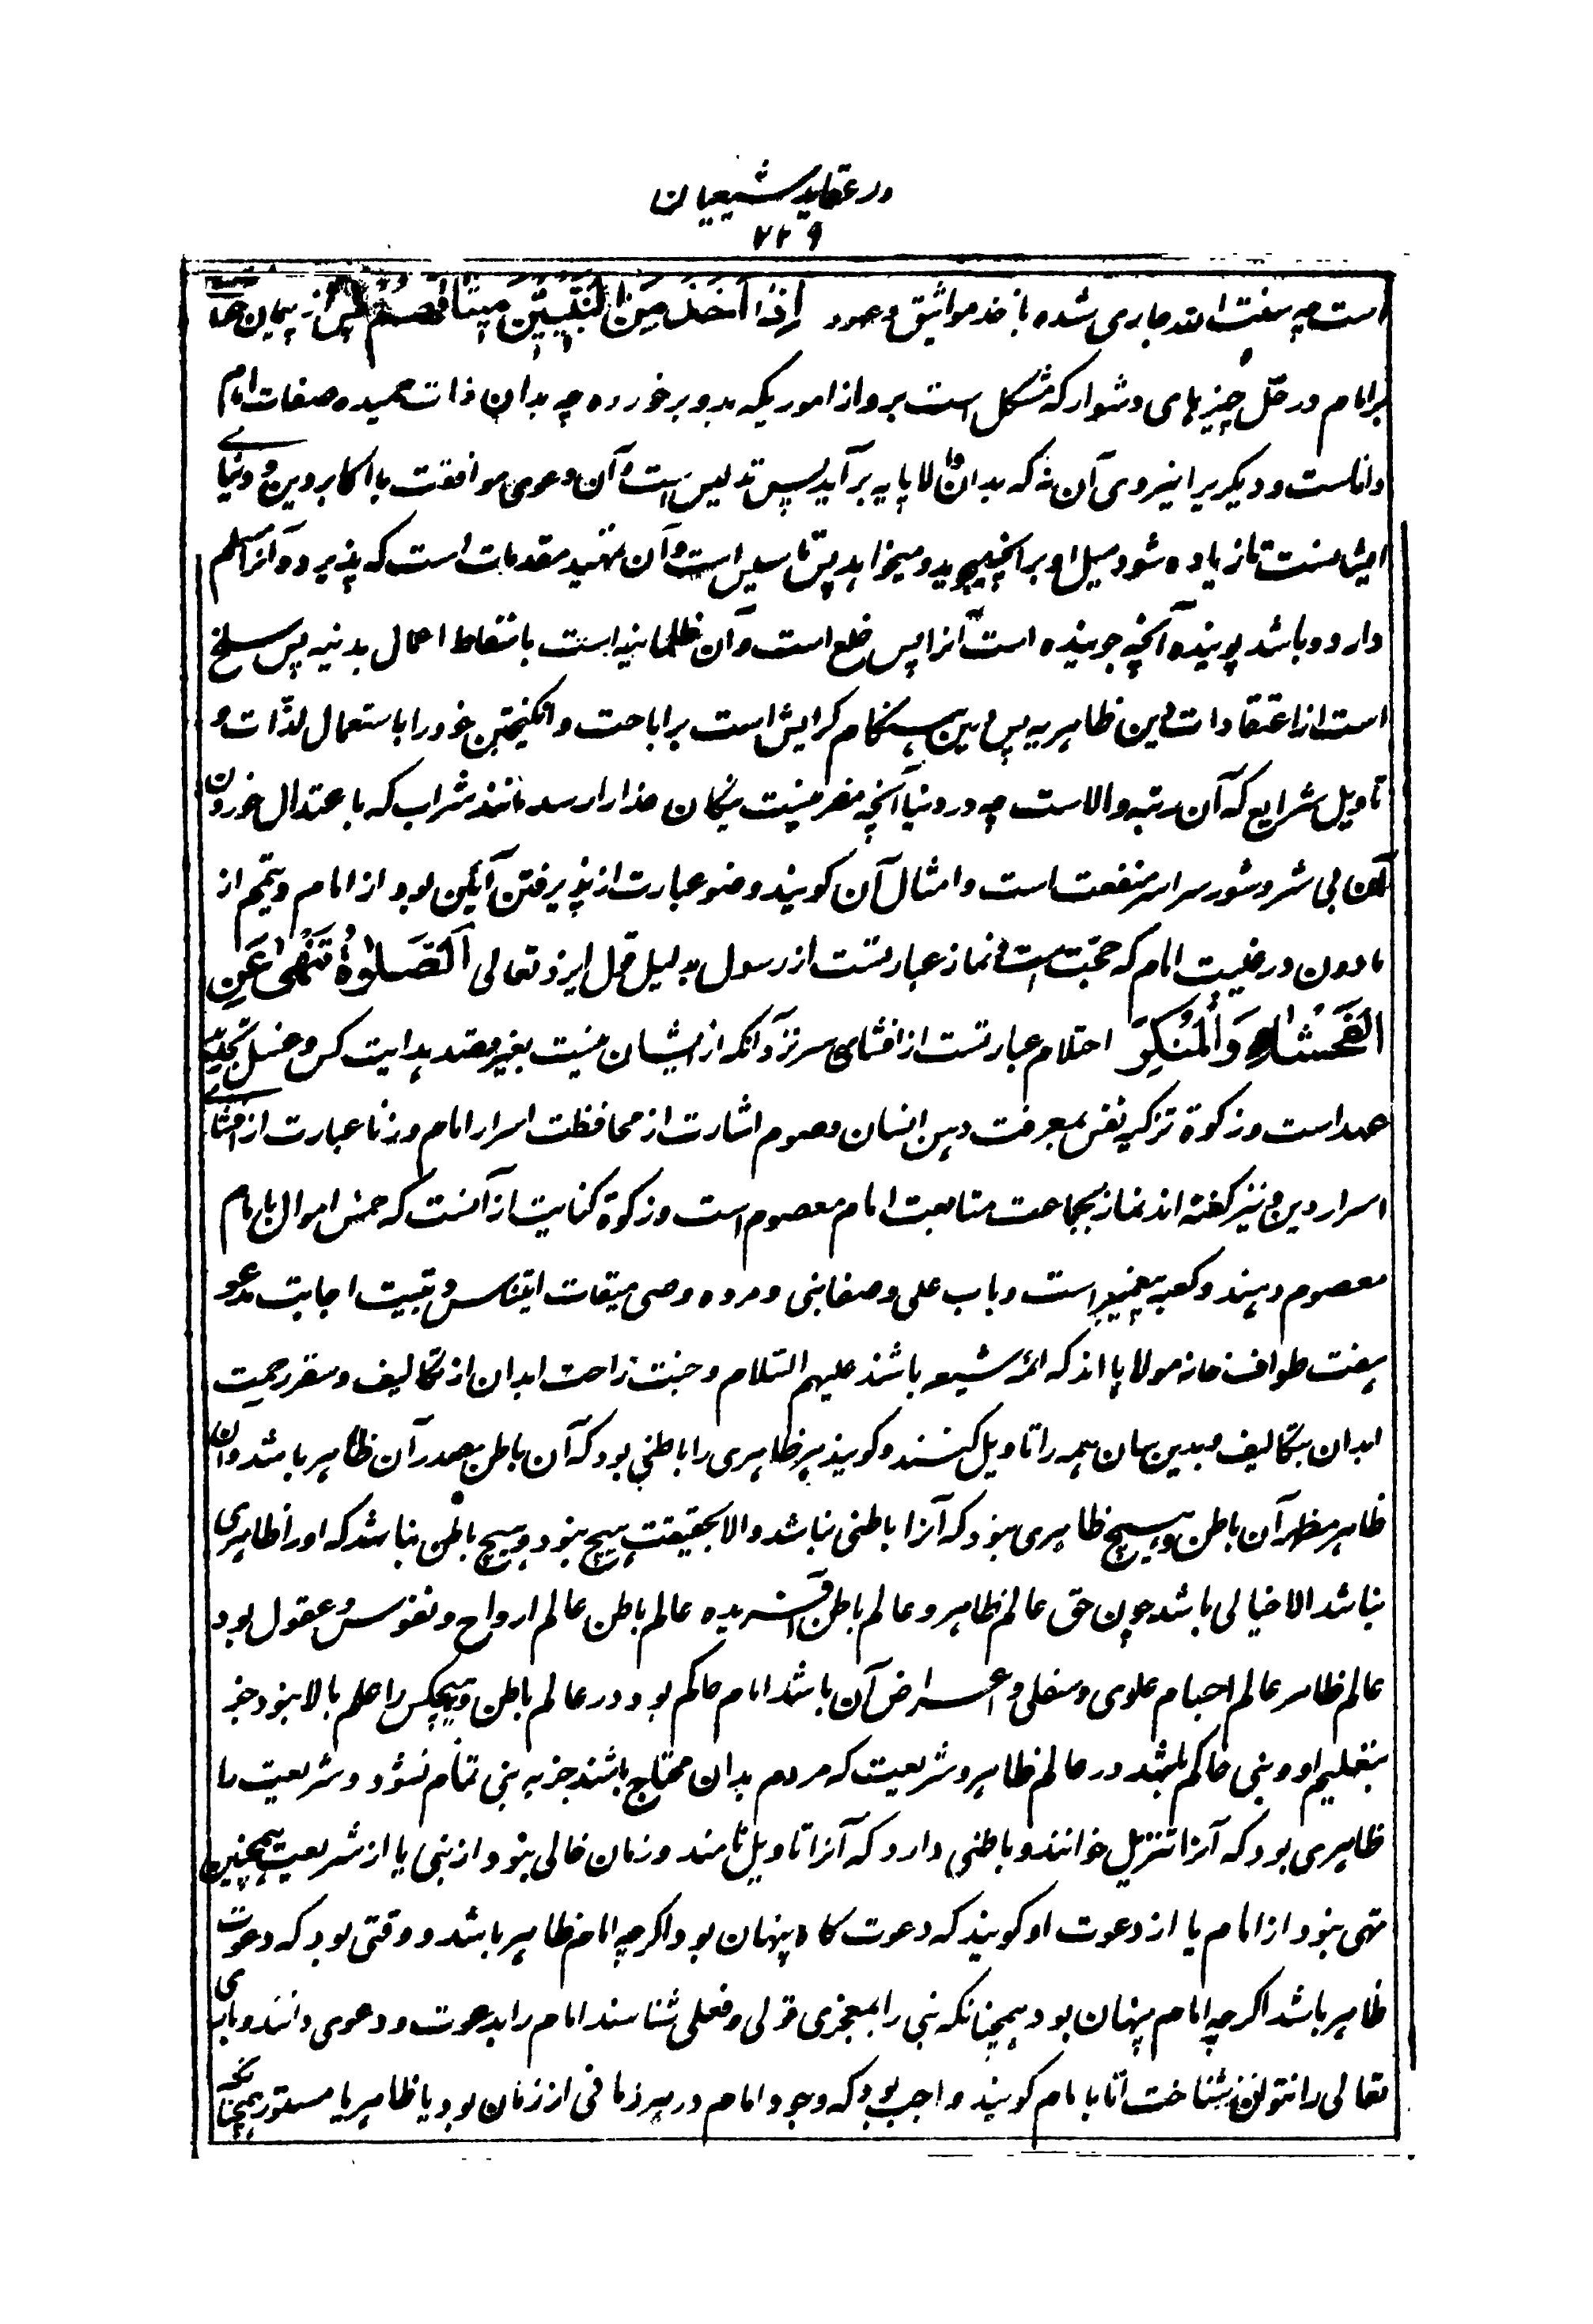 در عقاید شیعیان
۲۲۹
است چه سنت الله جاری شده باخذ مواثیق و عهود إِذْ أَخَذَ مِنَ النَّبِيِّينَ مِيثَاقَهُمْ پس از پیمان حوالت
بر امام در حل چیزهای دشوار که مشکل است برو از اموریکه بدو برخورده چه بدان ذات حمیده صفات امام
داناست و دیگریرا نیروی آن نه که بدان والا پایه برآید پس تدلیس است و آن دعوی موافقت با اکابر دین و دنیای
ایشانست تا زیاده شود میل او بر آنچه میجوید و میخواهد پس تاسیس است و آن تمهید مقدمات است که پذیرد و آنرا مسلم
دارد و باشد پوینده آنچه جوینده است آنرا پس خلع است و آن طمانینه است باسقاط اعمال بدنیه پس سلخ
است از اعتقادات دین ظاهریه پس درین هنگام گرایش است بر اباحت و انگیختن خود را باستعمال لذات و
تاویل شرایع که آن رتبه والاست چه در دنیا آنچه مضر نیست نیکان خدا را رسد مانند شراب که باعتدال خوردن
آن بی شر و شور سراسر منفعت است و امثال آن گویند وضو عبارت از پذیرفتن آئین بود از امام و تیمم از
ماذون در غیبت امام که حجت است و نماز عبارتست از رسول بدلیل قول ایزد تعالی اَلصَّلٰوةُ تَنْهٰی عَنِ
الْفَحْشَاءِ وَالْمُنْكَرِ احتلام عبارتست از افشای سر نزد آنکه از ایشان نیست بغیر قصد هدایت کس و غسل تجدید
عهد است و زکوة تزکیه نفس بمعرفت دین انسان و صوم اشارت از محافظت اسرار امام و زنا عبارت از افشای
اسرار دین و نیز گفته اند نماز بجماعت متابعت امام معصوم است و زکوة کنایت از آنست که خمس اموال بامام
معصوم دهند و کعبه پیغمبر است و باب علی و صفا نبی و مروه وصی میقات ایناس و تلبیت اجابت مدعو
هفت طواف خانه موالا با اند که ائمه شیعه باشند علیهم السلام و جنت راحت ابدان از تکالیف و سقر زحمت
ابدان بتکالیف و بدین سان همه را تاویل کنند و گویند هر ظاهری را باطنی بود که آن باطن مصدر آن ظاهر باشد و آن
ظاهر مظهر آن باطن و هیچ ظاهری نبود که آنرا باطنی نباشد والا بحقیقت هیچ نبود و هیچ باطن نباشد که او را ظاهری
نباشد الا خیالی باشد چون حق عالم ظاهر و عالم باطن آفریده عالم باطن عالم ارواح و نفوس و عقول بود
عالم ظاهر عالم اجسام علوی و سفلی و اعراض آن باشد امام حاکم بود در عالم باطن و هیچکس را علم بالا نبود جز
بتعلیم او و نبی حاکم باشد در عالم ظاهر و شریعت که مردم بدان محتاج باشند جز به نبی تمام نشود و شریعت را
ظاهری بود که آنرا تنزیل خوانند و باطنی دارد که آنرا تاویل نامند و زمان خالی نبود از نبی یا از شریعت همچنین
تهی نبود از امام یا از دعوت او گویند که دعوت گاه پنهان بود اگرچه امام ظاهر باشد و وقتی بود که دعوت
ظاهر باشد اگرچه امام پنهان بود همچنانکه نبی را بمعجزی قولی و فعلی شناسند امام را بدعوت و دعوی دانند و باری
تعالی را نتوانند شناخت الا بامام گویند واجب بود که وجود امام در هر زمانی از زمان بود یا ظاهر یا مستور همچنانکه